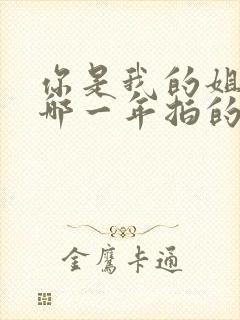 你是我的姐
哪一年拍的
金鹰卡通